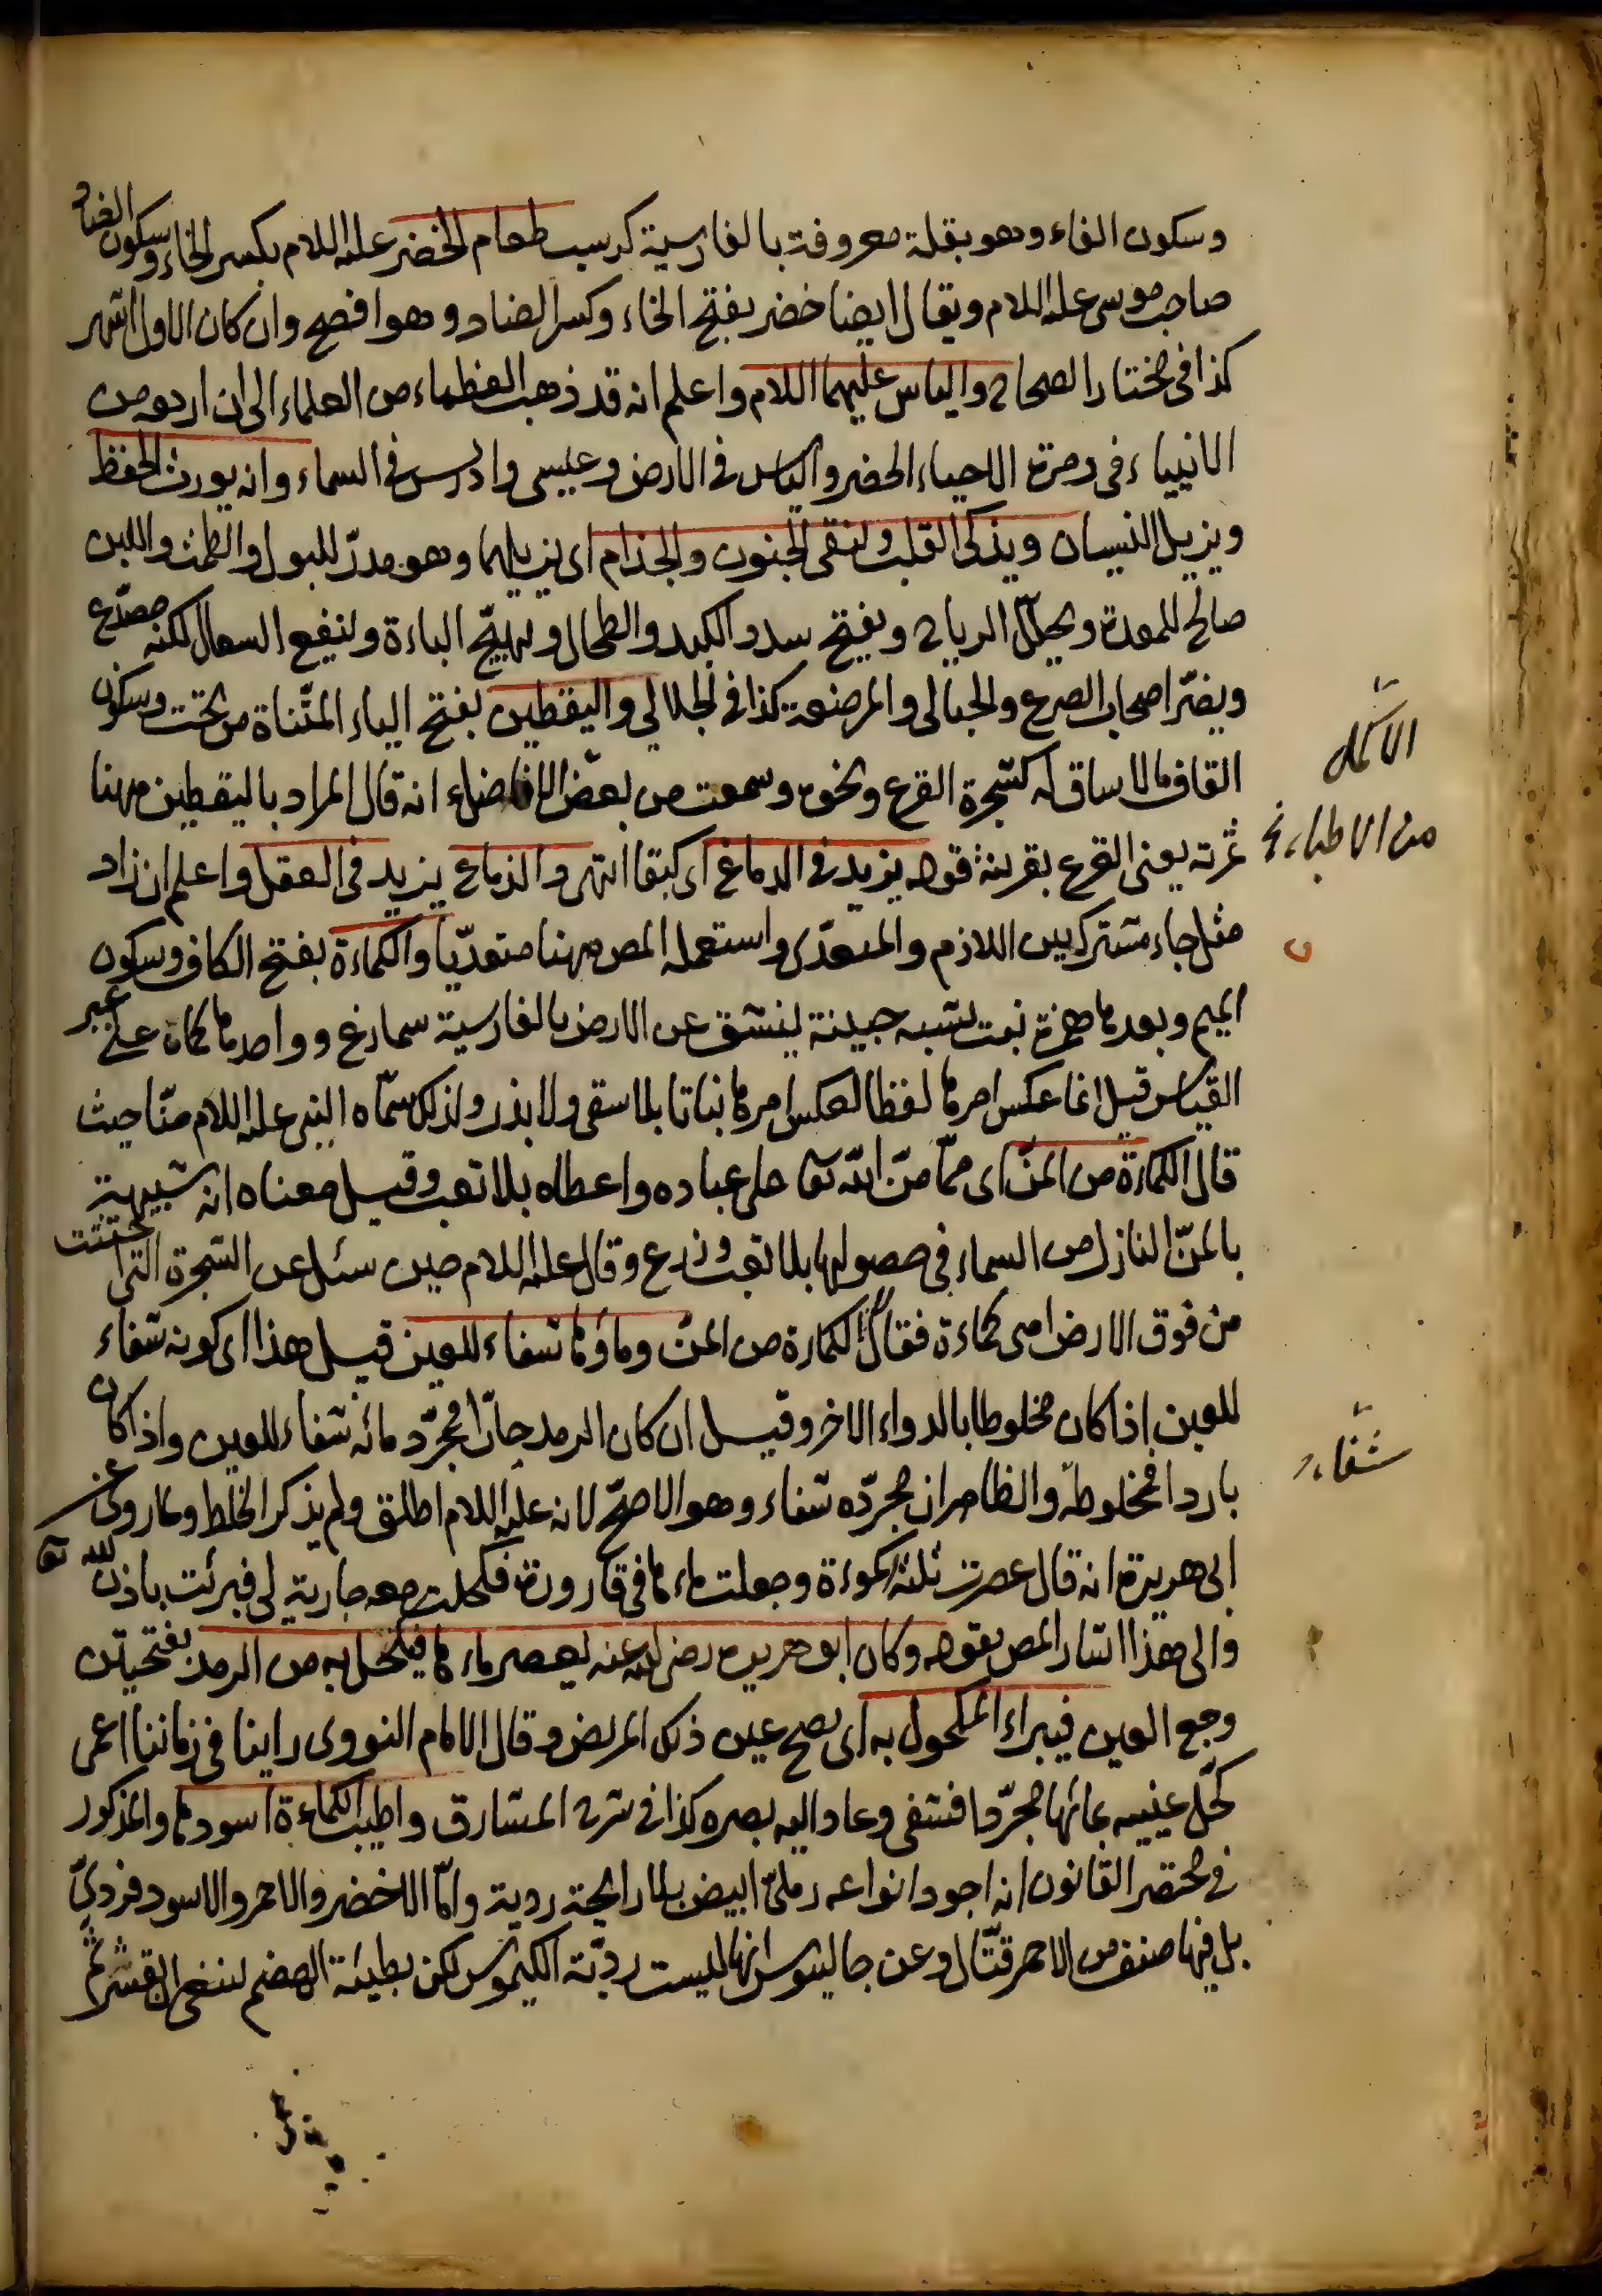 وسكون الفاء وهو بقلة معروفة بالفارسية كرسب طعام الخضر عليه السلام بكسر الخاء وسكون الضاد
صاحب موسى عليه السلام ويقال ايضا خضر بفتح الخاء وكسر الضاد وهو افصح وان كان الاول اشهر
كذا فى مختار الصحاح والياس عليهما السلام واعلم انه قد ذهب العظماء من العلماء الى ان اربعة من
الانبياء فى زمرة الاحياء الخضر والياس فى الارض وعيسى وادريس فى السماء وانه يورث الحفظ
ويزيل النسيان ويذكى القلب وينقى الجنون والجذام اى يزيلهما وهو مدرّ للبول والطمث واللبن
صالح للمعدة ويحلّل الرياح ويفتح سدد الكبد والطحال ويهيّج الباءة وينفع السعال لكنه مصدّع
ويضرّ اصحاب الصرع والحبالى والمرضعة كذا فى الجلالى واليقطين بفتح الياء المثنّاة من تحت وسكون
القاف ما لا ساق له كشجرة القرع ونحوه وسمعت من بعض الافاضل انه قال المراد باليقطين ههنا
ثمرته يعنى القرع بقرينة قوله يزيد فى الدماغ اى كيفا انتهى والدماغ يزيد فى العقل واعلم ان زاد
مثل جاء مشترك بين اللازم والمتعدّى واستعمله المص ههنا متعدّيا والكماءة بفتح الكاف وسكون
الميم وبعدها همزة نبت يشبه جبينة ينشق عن الارض بالفارسية سمارغ وواحدها كماة على غير
القياس قيل انما عكس امرها لفظا لعكس امرها نباتا بلا سقى ولا بذر ولذلك سمّاه النبى عليه السلام منّا حيث
قال الكماءة من المنّ اى ممّا منّ الله تعا على عباده واعطاه بلا تعب وقيل معناه انه شبيهة
بالمنّ النازل من السماء فى حصولها بلا تعب وزرع وقال عليه السلام حين سئل عن الشجرة التى اجتثت
من فوق الارض اهى كماءة فقال الكماءة من المنّ وماؤها شفاء للعين قيل هذا اى كونه شفاء
للعين اذا كان مخلوطا بالدواء الاخر وقيل ان كان الرمد حارّا فمجرّد مائه شفاء للعين واذا كان
باردا فمخلوطه والظاهر ان مجرّده شفاء وهو الاصحّ لانه عليه السلام اطلق ولم يذكر الخلط ولما روى عن
ابى هريرة انه قال عصرت ثلثة اكموءة وجعلت ماءها فى قارورة فكحلت معه جارية لى فبرئت باذن الله تعا
والى هذا اشار المص بقوله وكان ابو هريرة رضى الله عنه يعصر ماءها فيكتحل به من الرمد بفتحيتن
وجع العين فيبراء المكحول به اى يصح عين ذلك المريض وقال الامام النووى راينا فى زماننا اعمى
كحّل عينيه بمائها مجرّدا فشفى وعاد اليه بصره كذا فى شرح المشارق واطيب الكماءة اسودها والمذكور
فى مختصر القانون انه اجود انواعه رملىّ ابيض بلا رايحة روية وامّا الاخضر والاحمر والاسود فردىّ
بل فيها صنف من الاحمر قتّال وعن جالينوس انها ليست رديّة الكيموس لكن بطيئة الهضم ينبغى ان يقشر ثم
من الاطباء نخ
شفاء